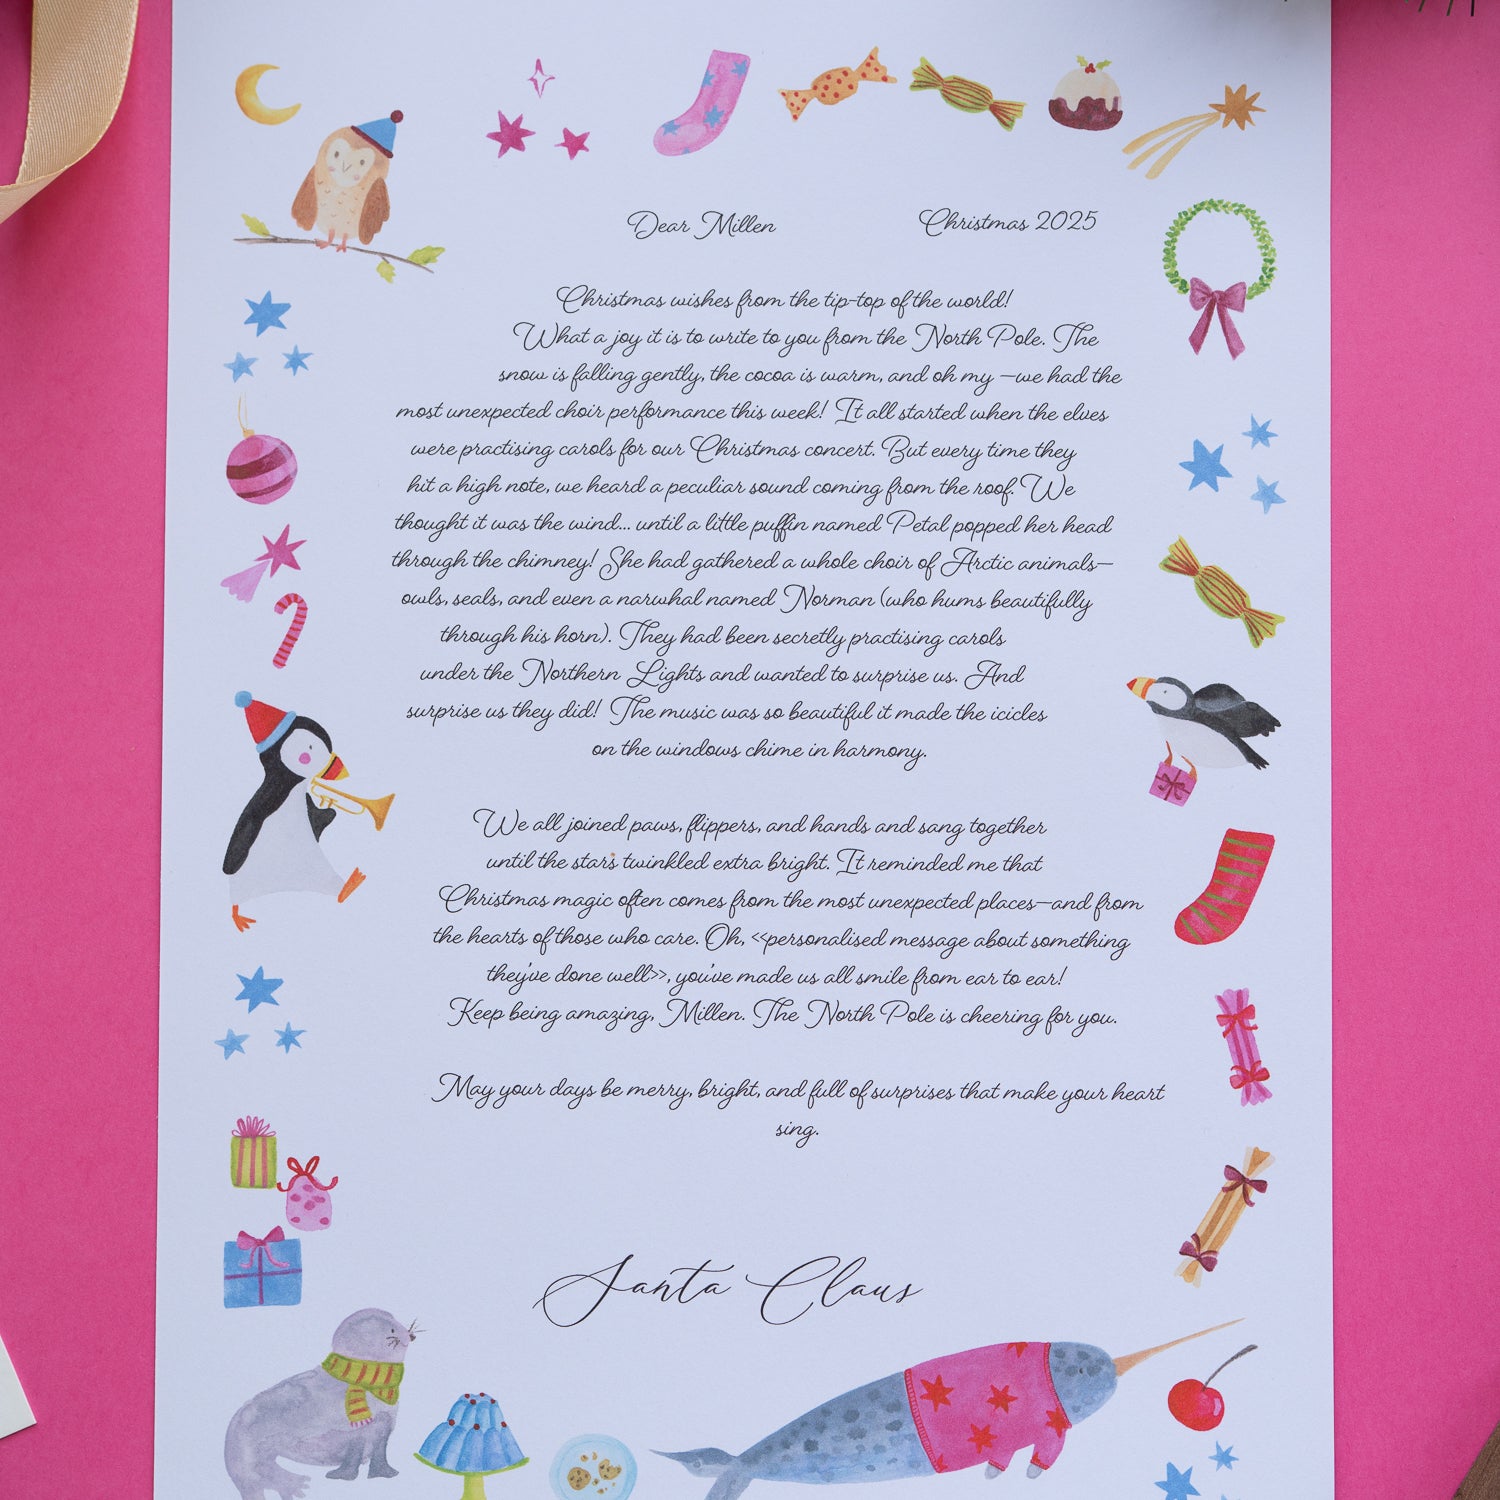 Dear Millen Christmas 2025
Christmas wishes from the tip-top of the world!
What a joy it is to write to you from the North Pole. The
snow is falling gently, the cocoa is warm, and oh my —we had the
most unexpected choir performance this week! It all started when the elves
were practising carols for our Christmas concert. But every time they
hit a high note, we heard a peculiar sound coming from the roof. We
thought it was the wind... until a little puffin named Petal popped her head
through the chimney! She had gathered a whole choir of Arctic animals—
owls, seals, and even a narwhal named Norman (who hums beautifully
through his horn). They had been secretly practising carols
under the Northern Lights and wanted to surprise us. And
surprise us they did! The music was so beautiful it made the icicles
on the windows chime in harmony.
We all joined paws, flippers, and hands and sang together
until the stars twinkled extra bright. It reminded me that
Christmas magic often comes from the most unexpected places—and from
the hearts of those who care. Oh, <<personalised message about something
they've done well>>, you've made us all smile from ear to ear!
Keep being amazing, Millen. The North Pole is cheering for you.
May your days be merry, bright, and full of surprises that make your heart
sing.
Santa Claus